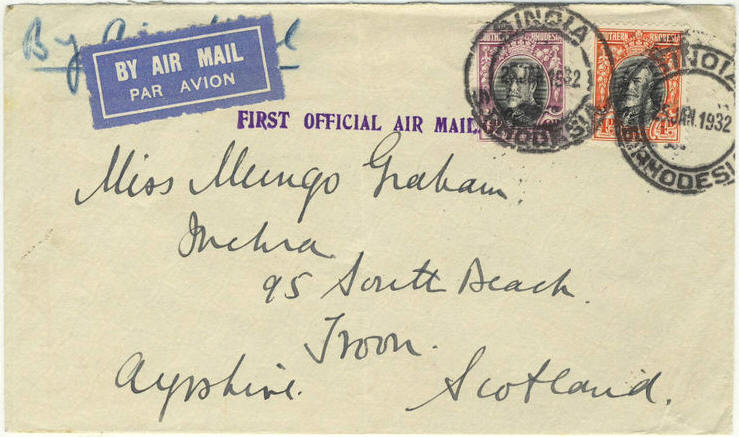 By Air Mail
BY AIR MAIL
PAR AVION
SOUTHERN RHODESIA
SINOIA
25 JAN 1932
S. RHODESIA
SINOIA
25 JAN. 1932
S. RHODESIA
4D
FIRST OFFICIAL AIR MAIL
Miss Mungo Graham.
95 South Beach.
Troon.
Ayrshire. Scotland.